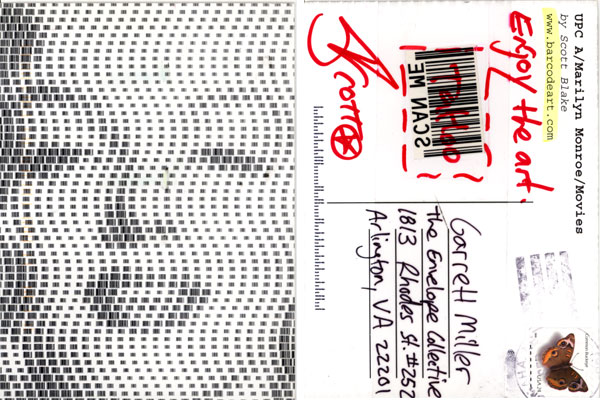 UPC A/Marilyn Monroe/Movies
by Scott Blake
www.barcodeart.com
Enjoy the art.
SCAN ME
Scott
Garrett Miller
the Envelope Collective
1813 Rhodes St. #252
Arlington, VA 22201